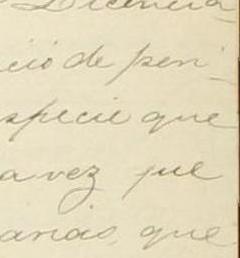 Licencia
ció de pen-
specie que
a vez que
anas, que